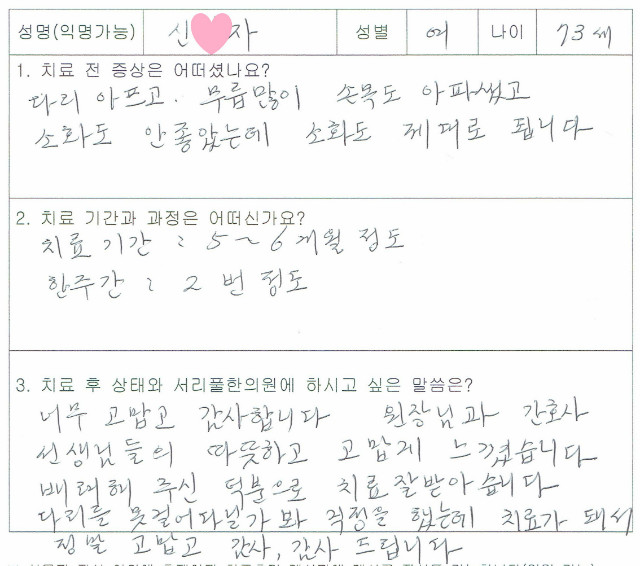 성명(익명가능) 신 자 성별 여 나이 73세
1. 치료 전 증상은 어떠셨나요?
다리 아프고. 무릎많이 손목도 아파썼고
소화도 안좋았는데 소화도 제대로 됩니다
2. 치료 기간과 과정은 어떠신가요?
치료기간 : 5~6개월 정도
한주간 : 2번 정도
3. 치료 후 상태와 서리풀한의원에 하시고 싶은 말씀은?
너무 고맙고 감사합니다 원장님과 간호사
선생님들의 따뜻하고 고맙게 느꼈습니다
배려해 주신 덕분으로 치료잘받아습니다
다리를 못걸어다닐가봐 걱정을 했는데 치료가 돼서
정말 고맙고 감사, 감사 드립니다